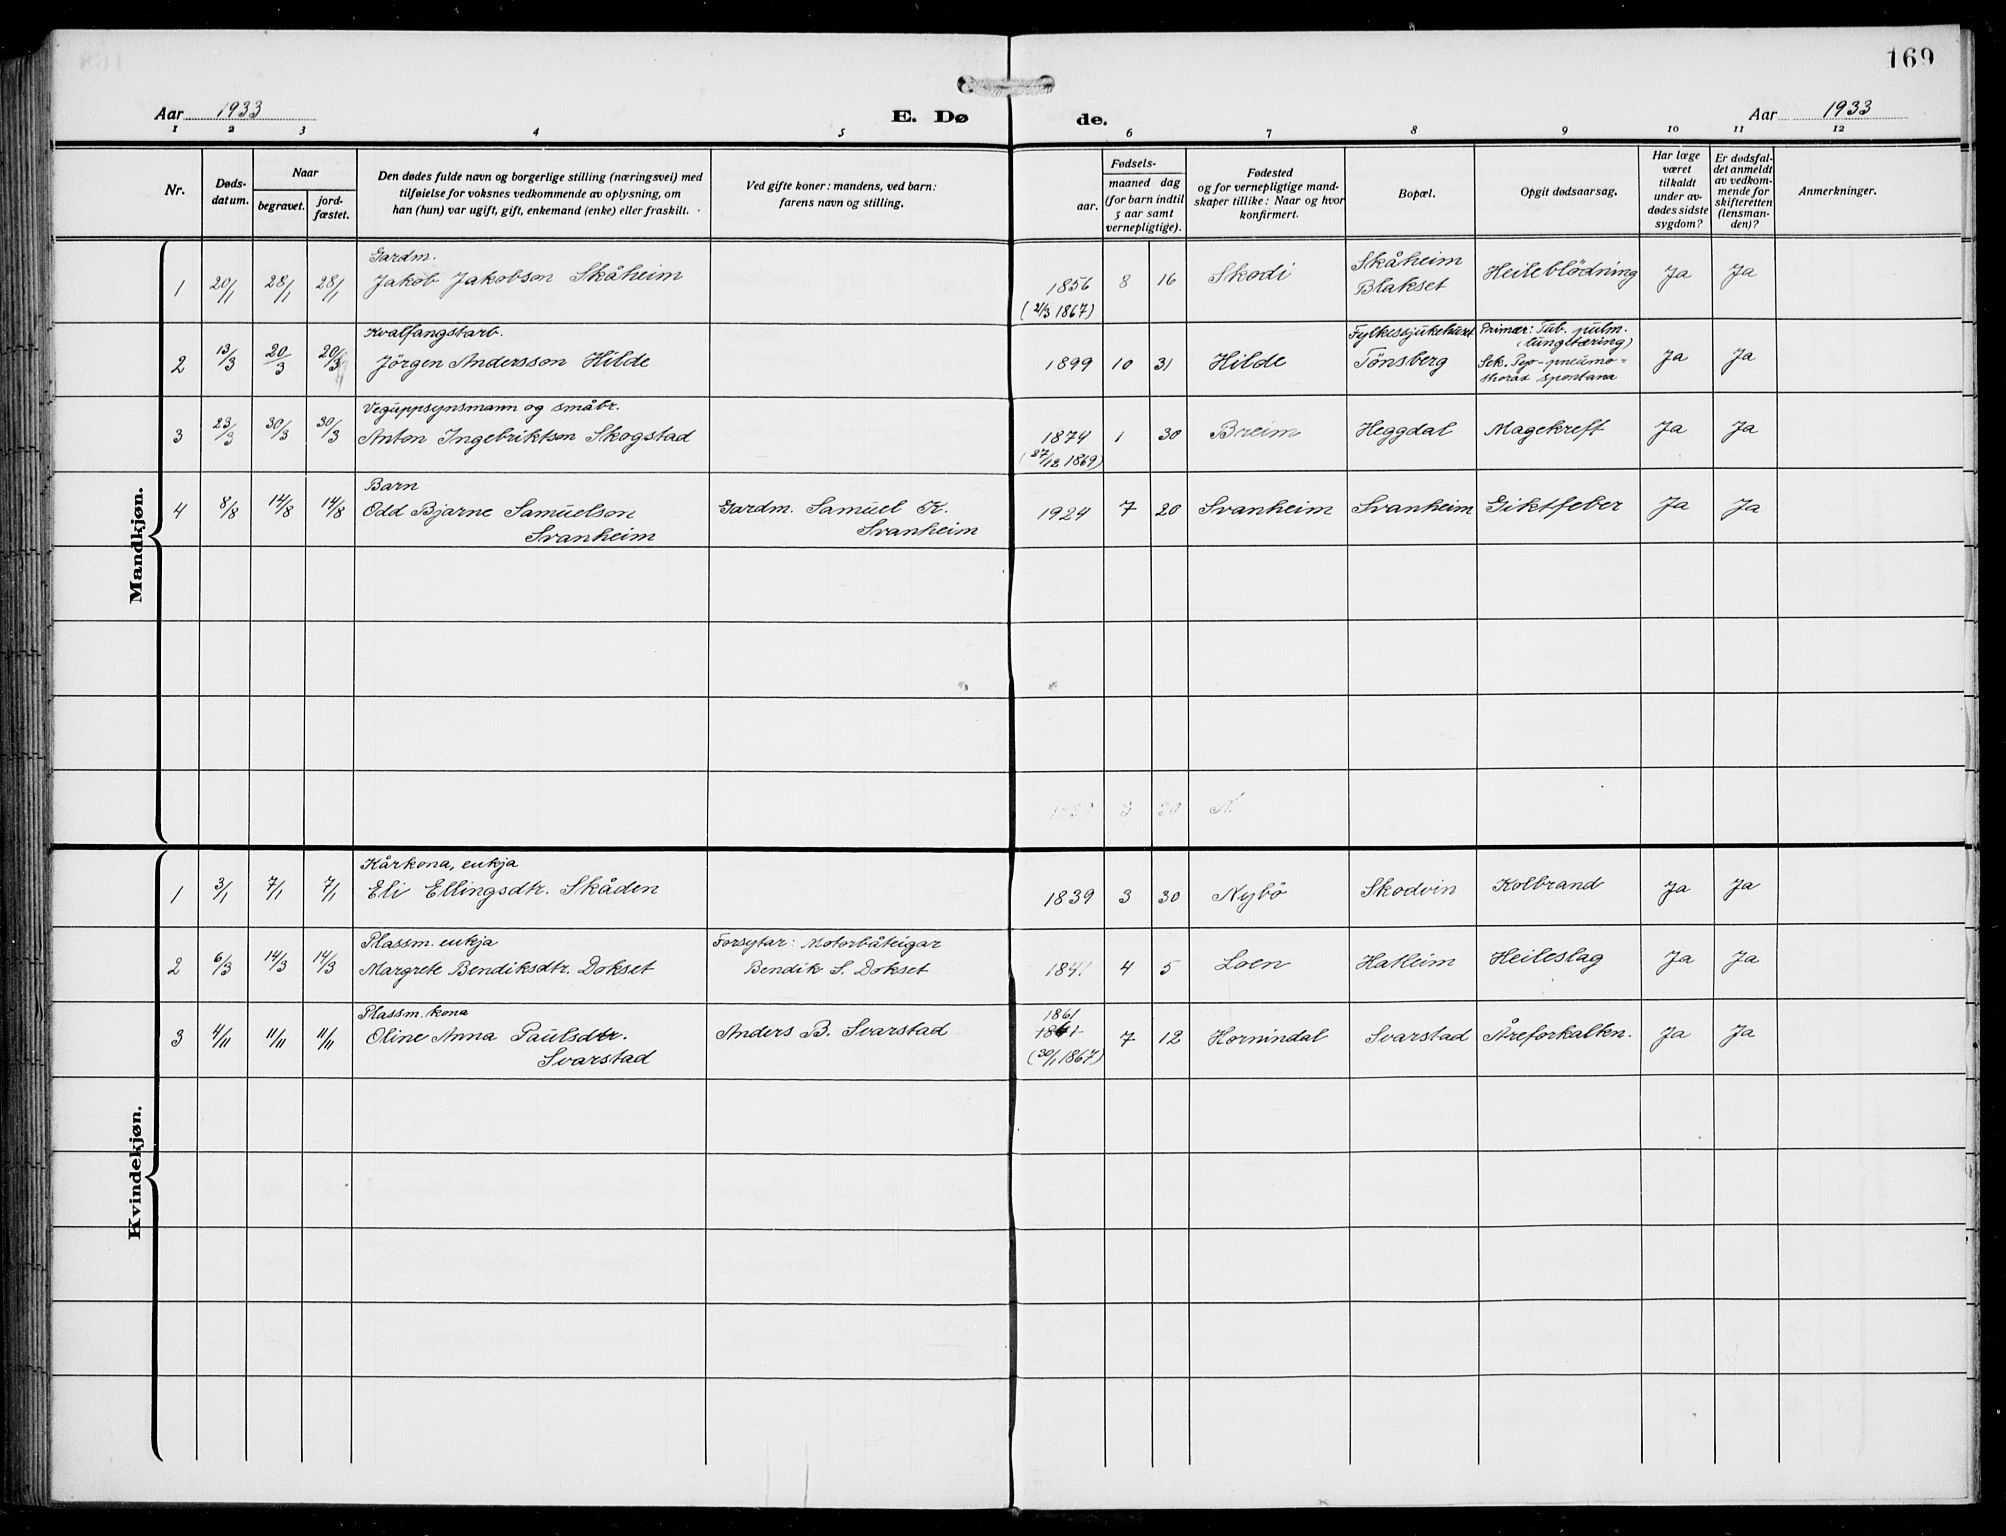 169
Aar 1933 E. Dø de. Aar 1933
1 2 3 4 5 6 7 8 9 10 11 12
Nr.
Døds-
datum.
Naar
begravet.
jord-
fæstet.
Den dødes fulde navn og borgerlige stilling (næringsvei) med
tilføielse for voksnes vedkommende av oplysning, om
han (hun) var ugift, gift, enkemand (enke) eller fraskilt.
Ved gifte koner: mandens, ved barn:
farens navn og stilling.
Fødsels-
aar.
maaned dag
(for barn indtil
5 aar samt
vernepligtige).
Fødested
og for vernepligtige mand-
skaper tillike: Naar og hvor
konfirmert.
Bopæl.
Opgit dødsaarsag.
Har læge
været
tilkaldt
under av-
dødes sidste
sygdom?
Er dødsfal-
det anmeldt
av vedkom-
mende for
skifteretten
(lensman-
den)?
Anmerkninger.
Mandkjøn.
Gardm.
1 20/1 28/1 28/1 Jakob Jakobson Skåheim 1856 8 16 Skodi Skåheim Heileblödning Ja Ja
(2/3 1867) Blakset
Kvalfangstarb. Fylkessjukehuset Primær: Tub. pulm.
(lungtæring)
2 13/3 20/3 20/3 Jörgen Andersson Hilde 1899 10 31 Hilde Tönsberg Sek. Pyo-pneumo- Ja Ja
thorax spontana
Veguppsynsmann og småbr.
3 23/3 30/3 30/3 Anton Ingebriktson Skogstad 1874 1 30 Breim Heggdal Magekreft Ja Ja
(27/12 1869)
Barn
4 8/8 14/8 14/8 Odd Bjarne Samuelson Gardm. Samuel K. 1924 7 20 Svanheim Svanheim Giktfeber Ja Ja
Svanheim Svanheim
Kvindekjøn.
Kårkona, enkja
1 3/1 7/1 7/1 Eli Ellingsdtr. Skåden 1839 3 30 Nybö Skodvin Kolbrand Ja Ja
Plassm. enkja Forsytar: Motorbåteigar
2 6/3 14/3 14/3 Margrete Bendiksdtr. Dokset Bendik S. Dokset 1841 4 5 Loen Hatleim Heileslag Ja Ja
Plassm. kona 1861
3 4/11 11/11 11/11 Oline Anna Paulsdtr. Anders B. Svarstad 1861 7 12 Hornindal Svarstad Åreforkalken. Ja Ja
Svarstad (30/1 1867)